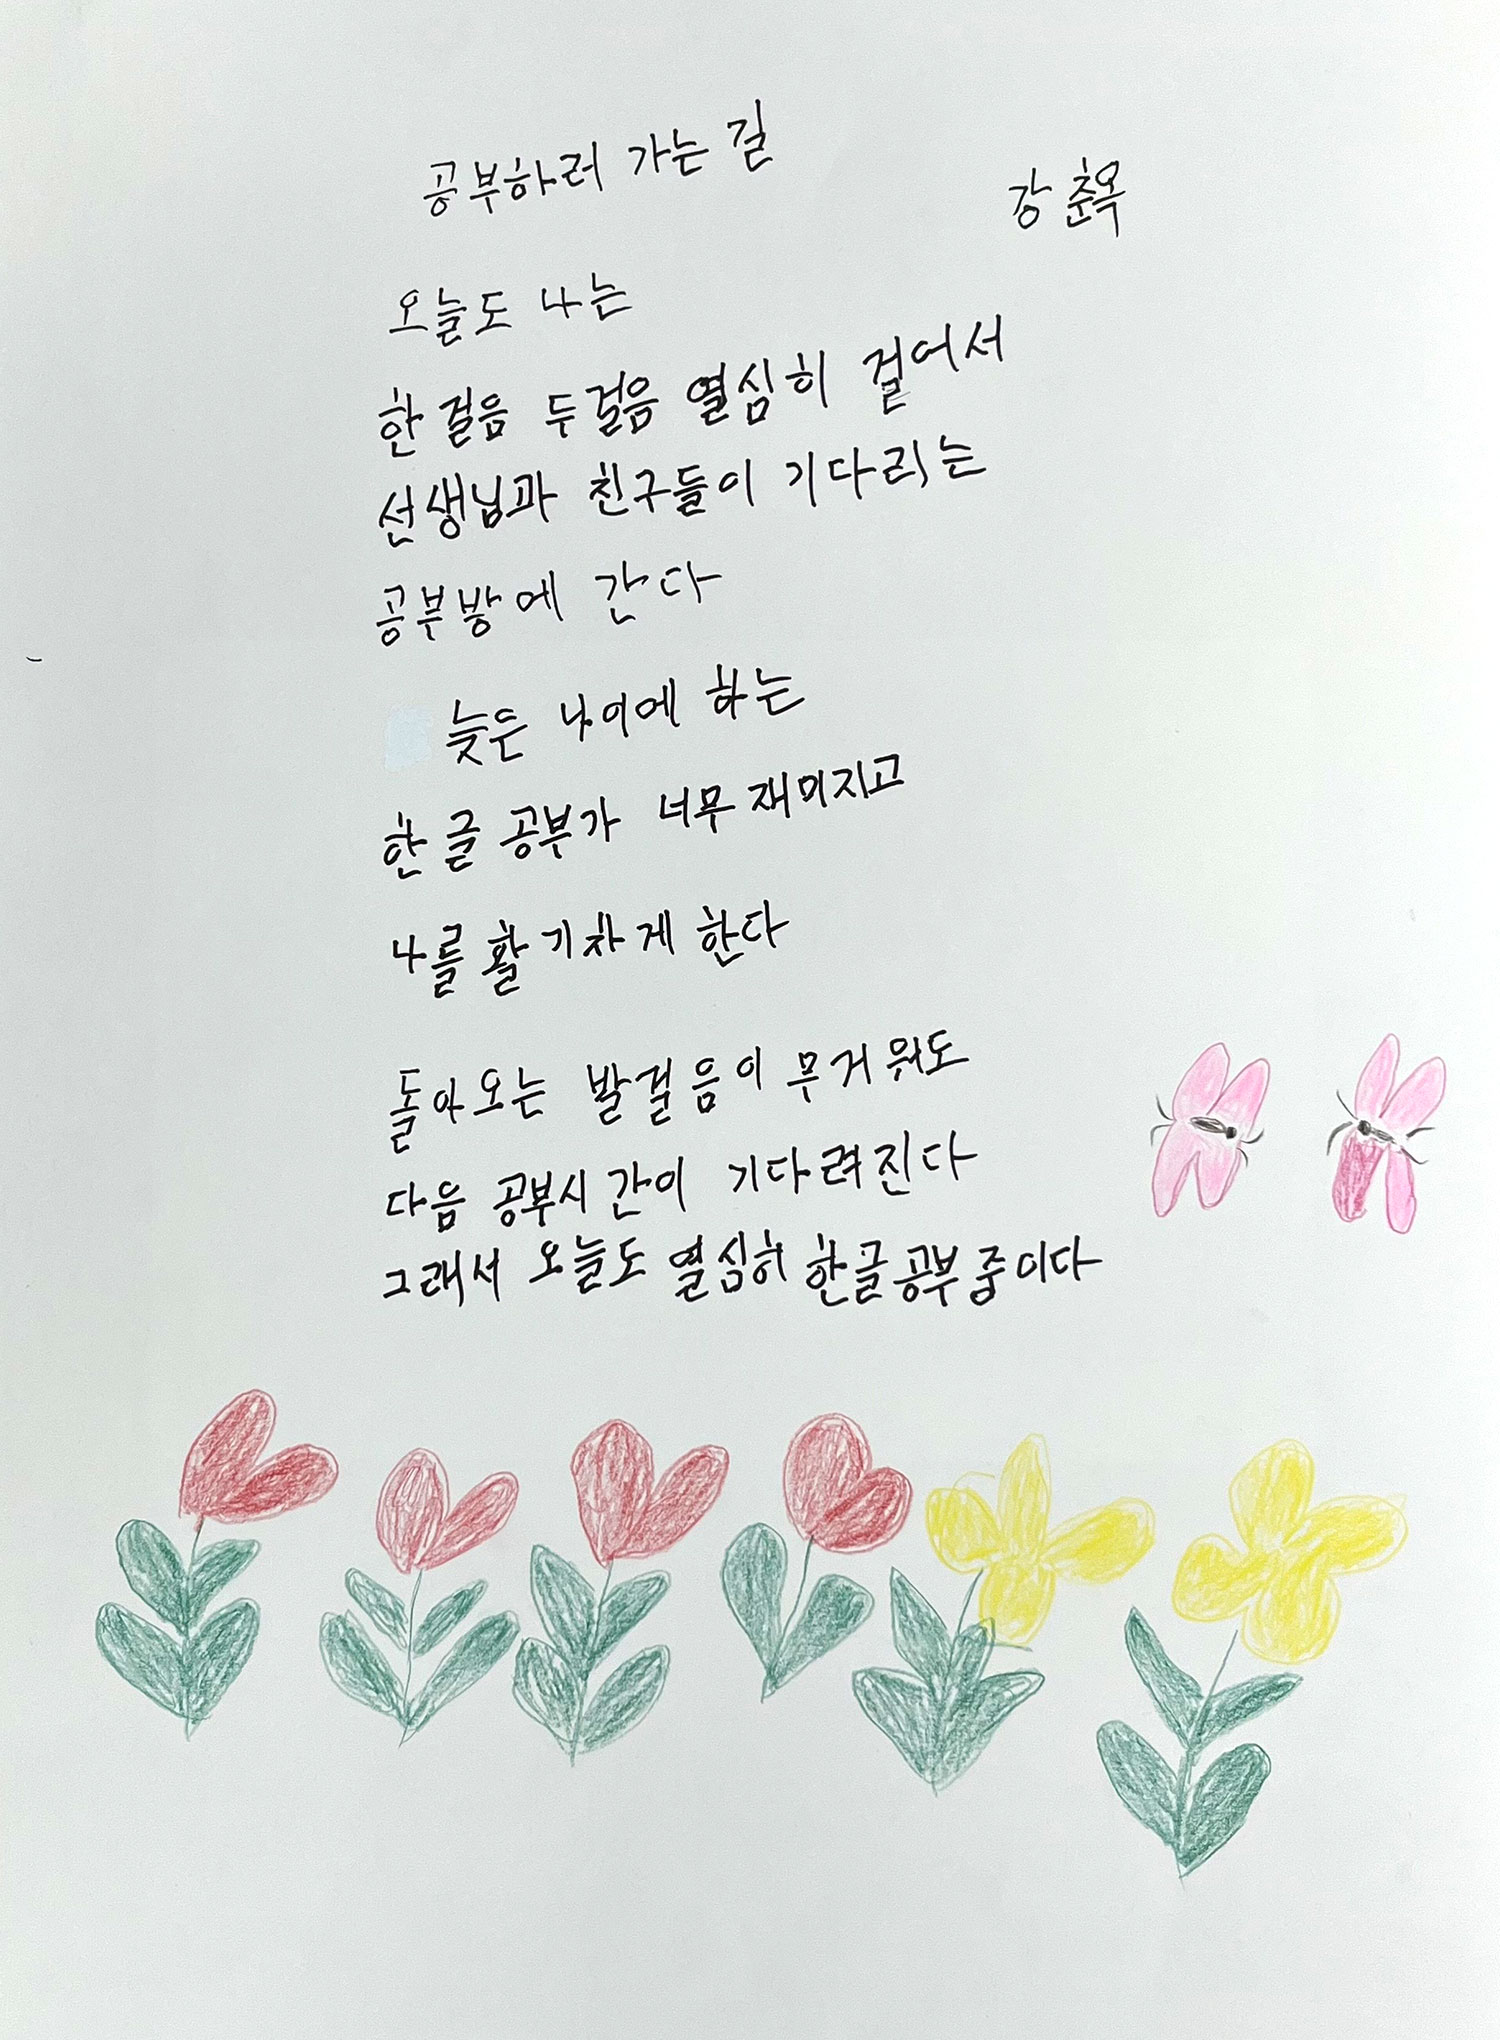 공부하러 가는 길
강춘옥
오늘도 나는
한걸음 두걸음 열심히 걸어서
선생님과 친구들이 기다리는
공부방에 간다
늦은 나이에 하는
한글 공부가 너무 재미지고
나를 활기차게 한다
돌아오는 발걸음이 무거워도
다음 공부시간이 기다려진다
그래서 오늘도 열심히 한글공부 중이다